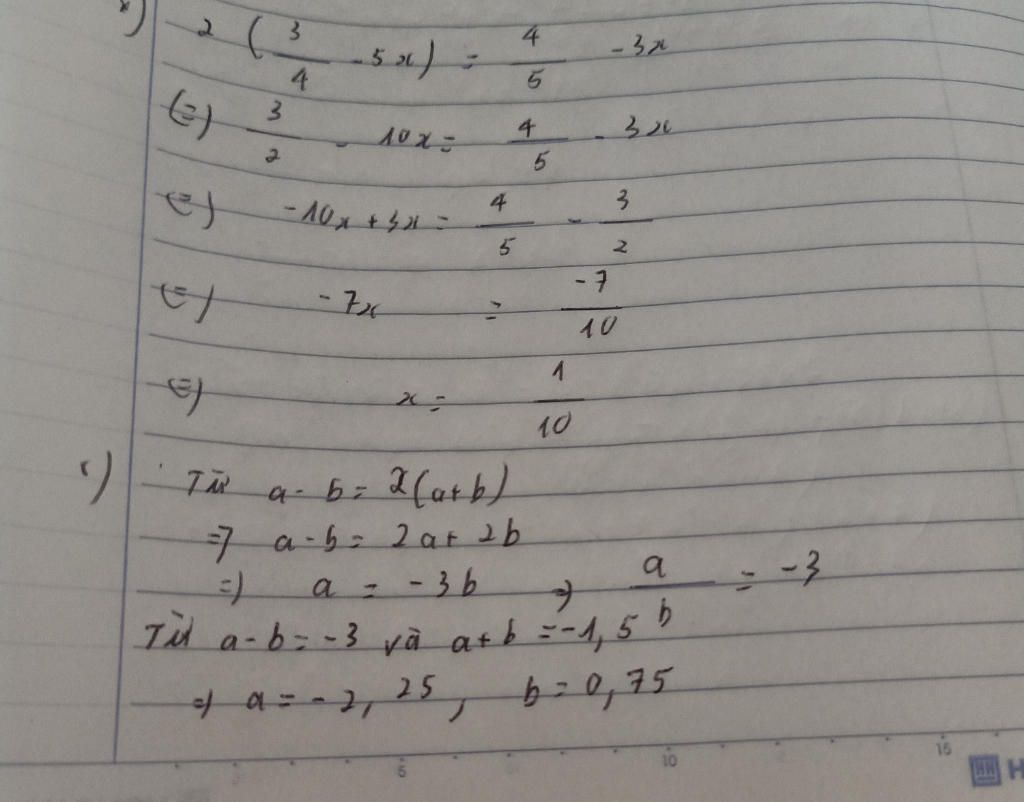 2 (3/4 - 5x) = 4/5 - 3x
(=) 3/2 - 10x = 4/5 - 3x
(=) -10x + 3x = 4/5 - 3/2
(=) -7x = -7/10
(=) x = 1/10
Từ a - b = 2(a+b)
=) a - b = 2a + 2b
=) a = -3b =) a/b = -3
Từ a - b = -3 và a + b = -1,5
=) a = -2,25, b = 0,75
5 10 15